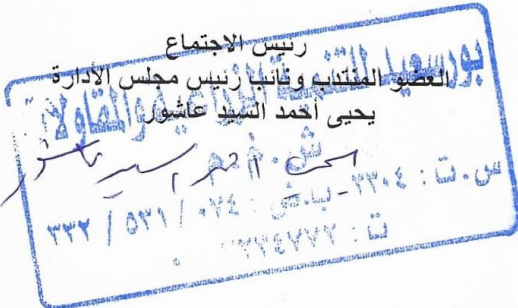 رئيس الاجتماع
العضو المنتدب ونائب رئيس مجلس الأدارة
يحيى أحمد السيد عاشور
بورسعيد للتنمية الزراعية والمقاولات
ش.م.م
س.ت : ٣٣٠٤ - ب.ض : ٠٧٤ / ٥٣١ / ٣٣٢
ت :